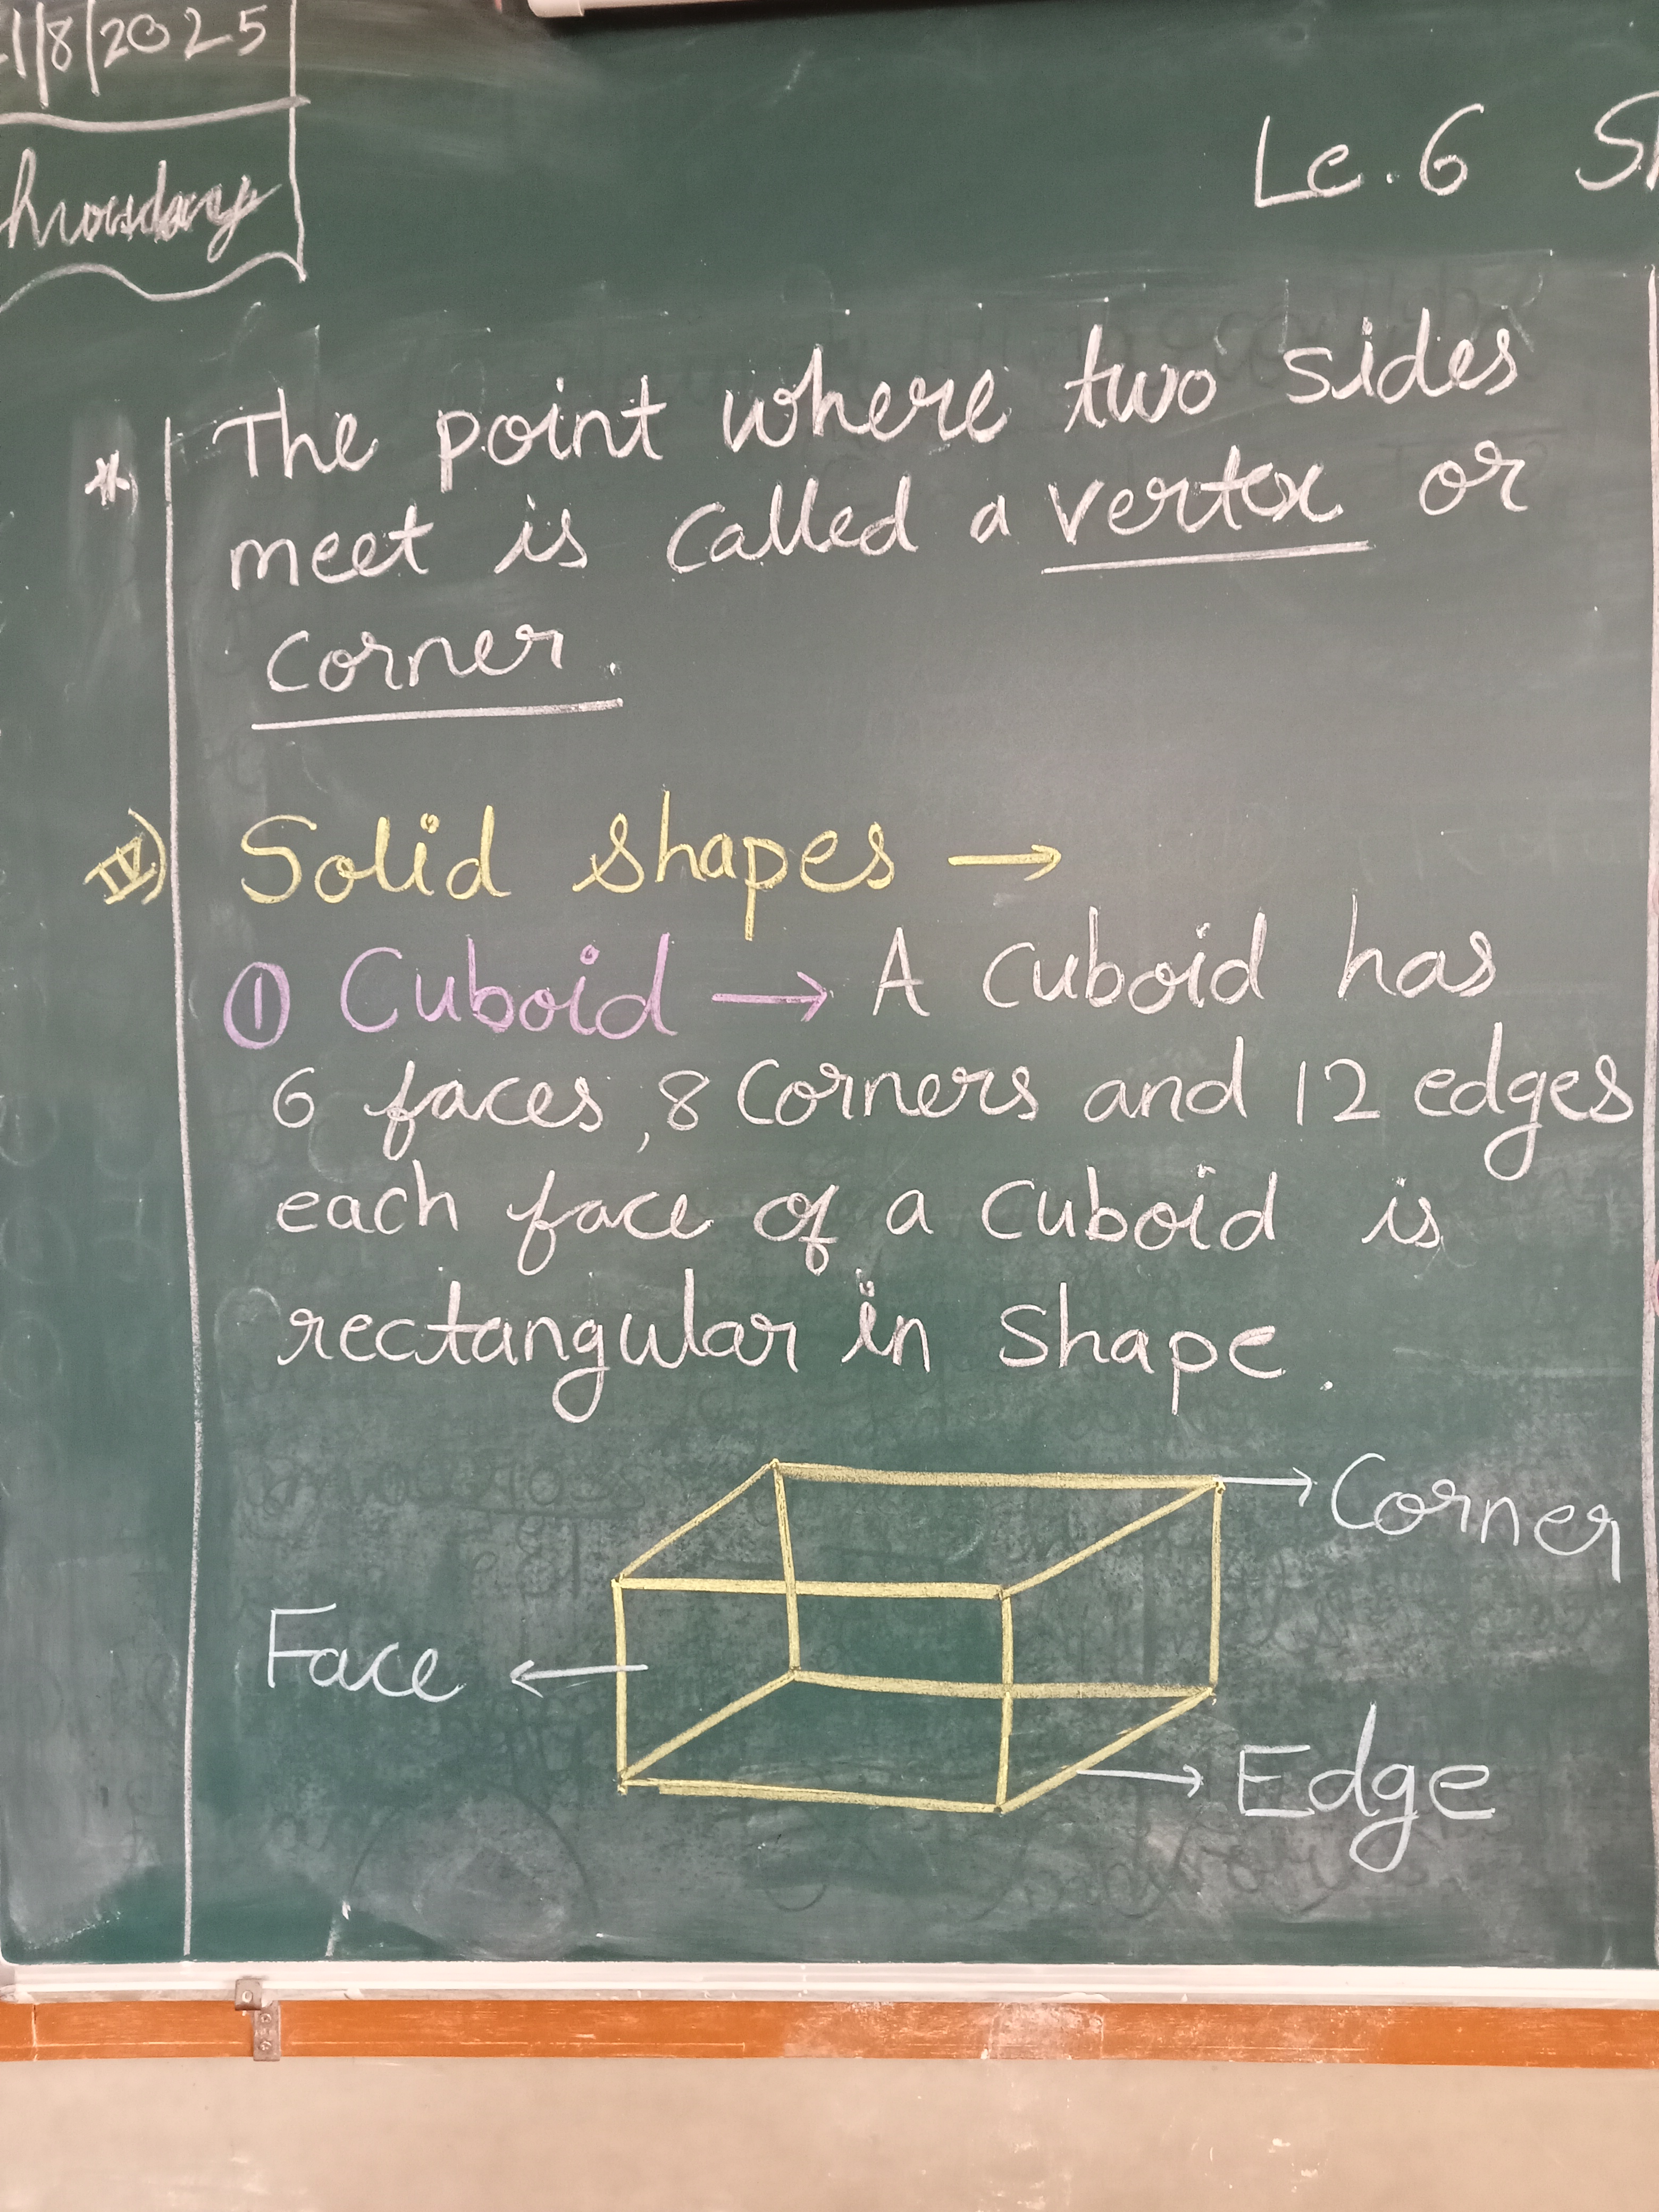 1/8/2025
Thursday
Le. 6
* The point where two sides
meet is called a vertex or
corner.
IV) Solid shapes →
① Cuboid → A cuboid has
6 faces, 8 corners and 12 edges
each face of a cuboid is
rectangular in shape.
Corner
Face
Edge